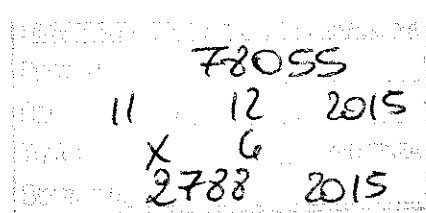 78055
11 12 2015
X 6
2788 2015